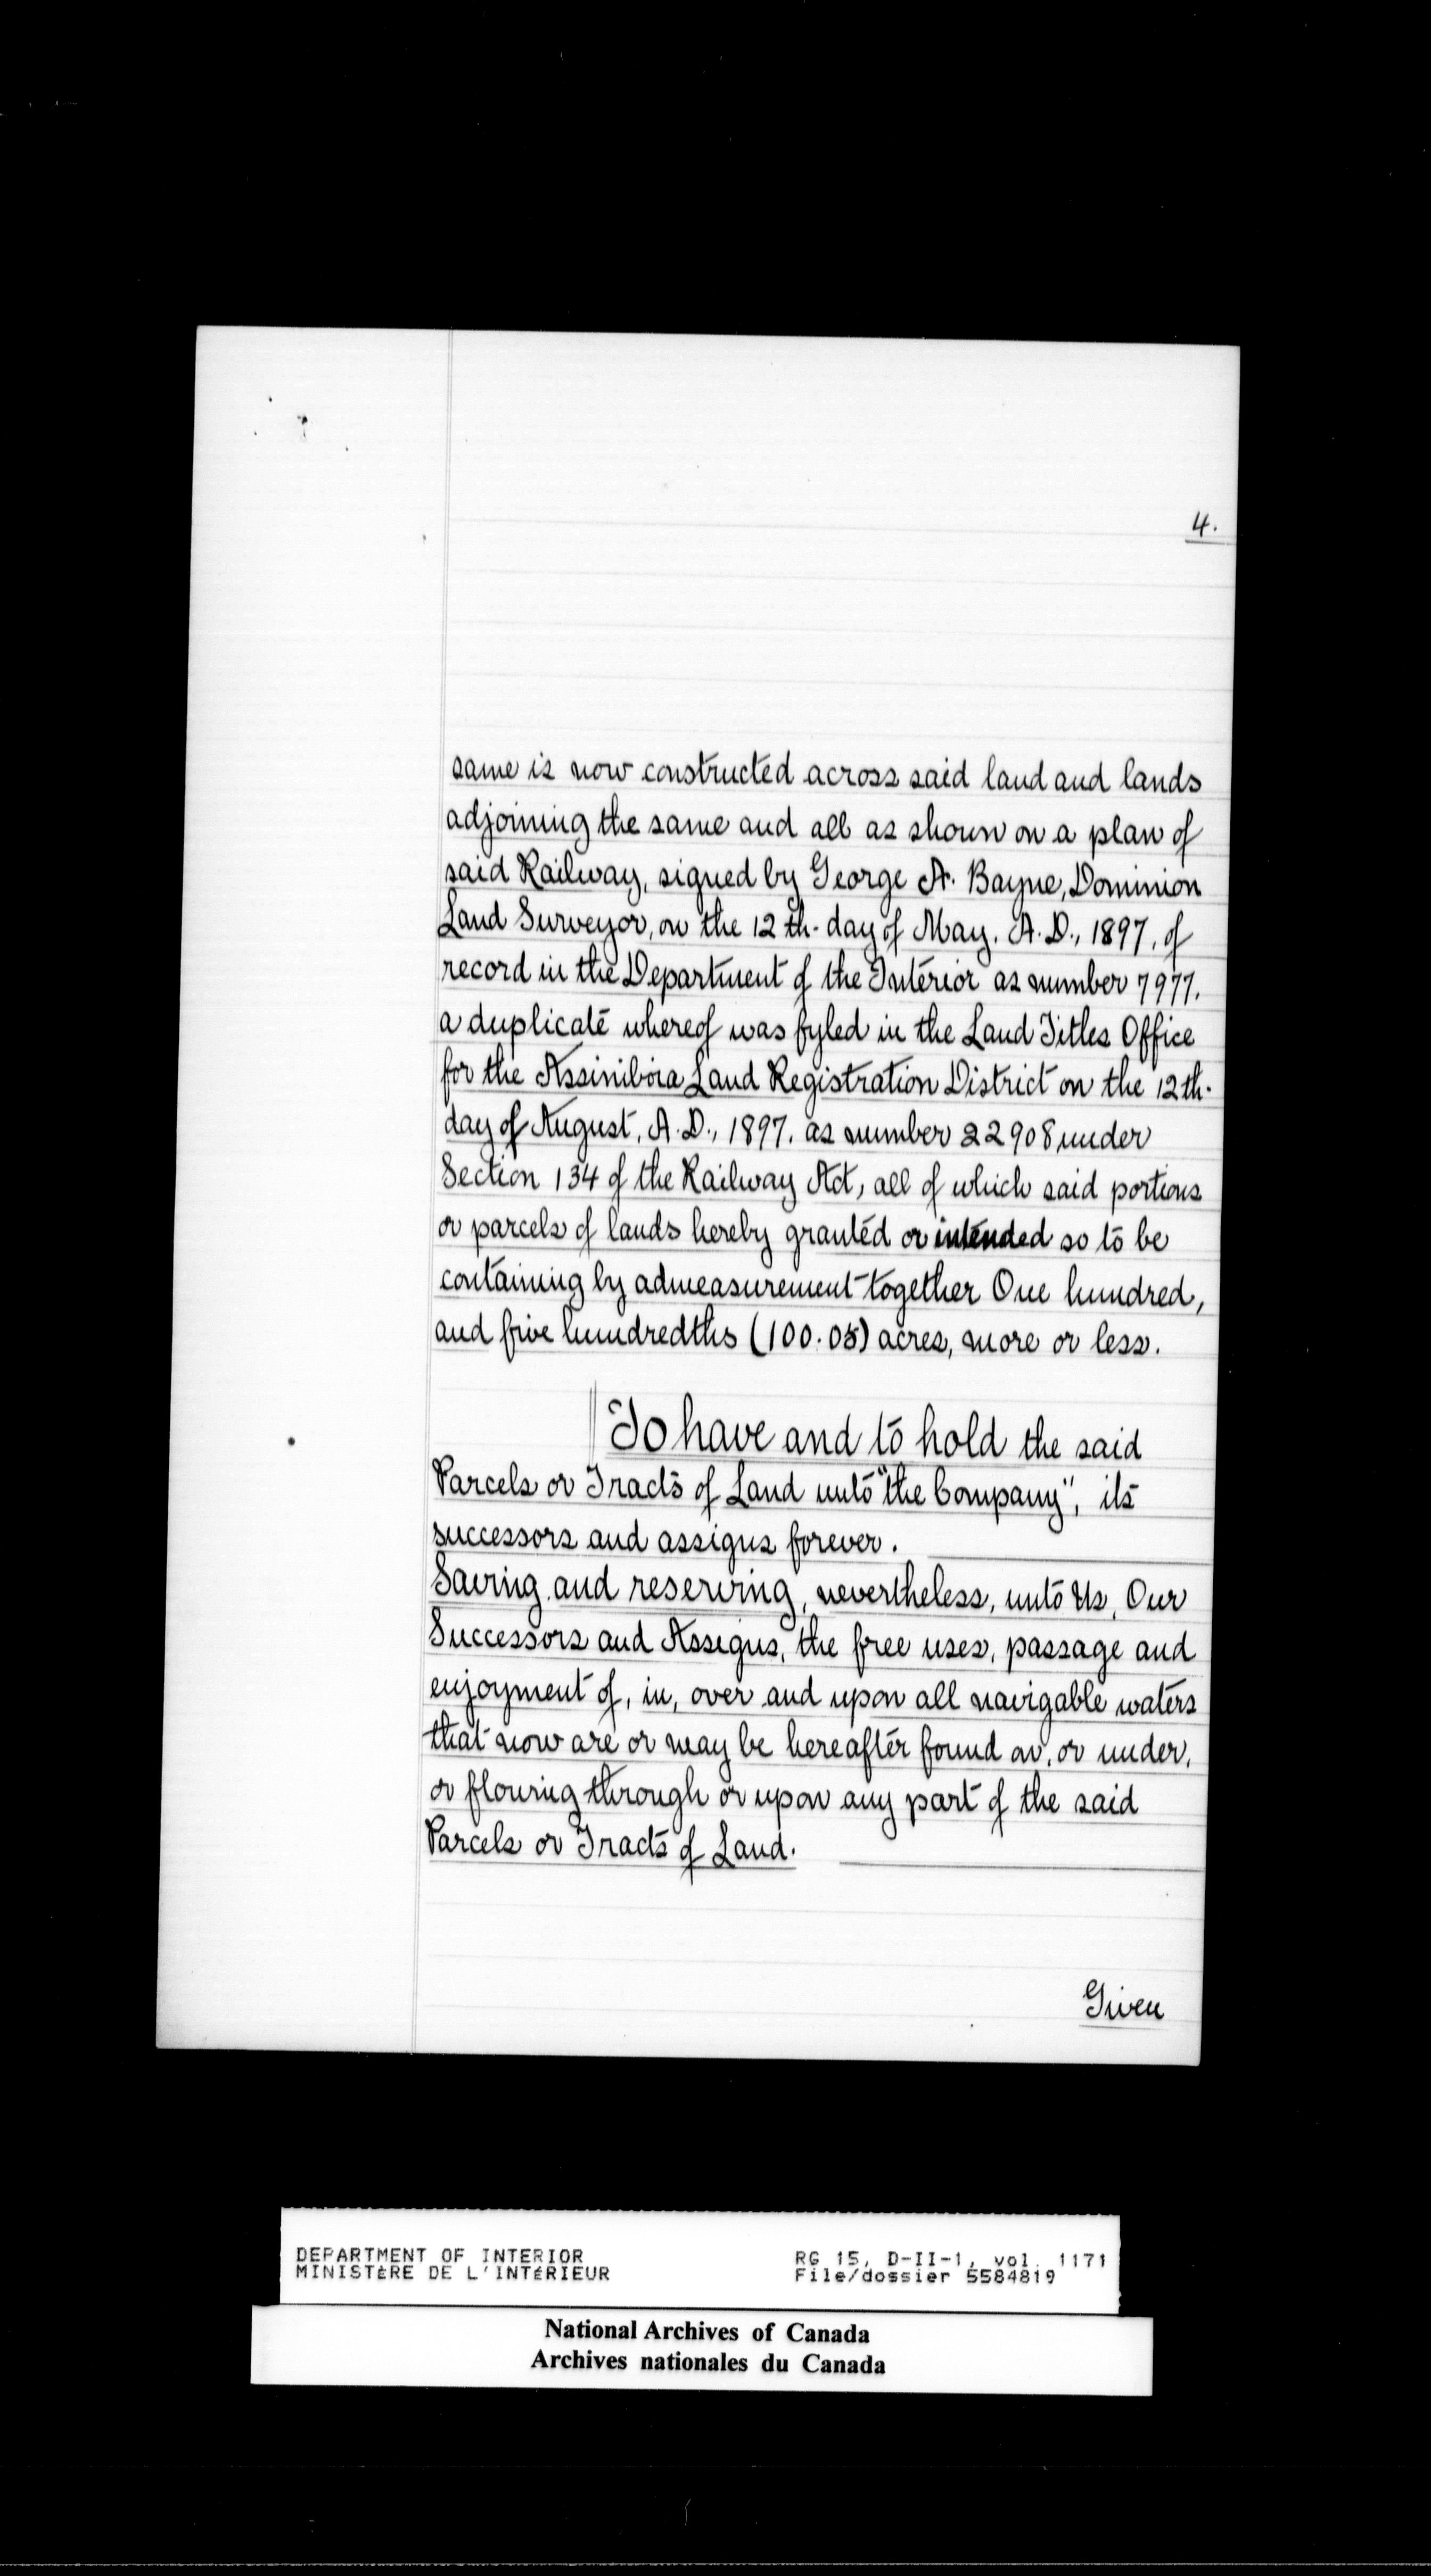 4.
same is now constructed across said land and lands
adjoining the same and all as shown on a plan of
said Railway, signed by George A. Bayne, Dominion
Land Surveyor, on the 12th. day of May. A.D., 1897, of
record in the Department of the Interior as number 7977.
a duplicate whereof was fyled in the Land Titles Office
for the Assiniboia Land Registration District on the 12th.
day of August, A.D., 1897. as number 22908 under
Section 134 of the Railway Act, all of which said portions
or parcels of lands hereby granted or intended so to be
containing by admeasurement together One hundred,
and five hundredths (100.05) acres, more or less.
To have and to hold the said
Parcels or Tracts of Land unto "the Company", its
successors and assigns forever.
Saving and reserving, nevertheless, unto Us, Our
Successors and Assigns, the free uses, passage and
enjoyment of, in, over and upon all navigable waters
that now are or may be hereafter found on, or under,
or flowing through or upon any part of the said
Parcels or Tracts of Land.
Given
DEPARTMENT OF INTERIOR RG 15, D-II-1, vol. 1171
MINISTÈRE DE L'INTÉRIEUR File/dossier 5584819
National Archives of Canada
Archives nationales du Canada